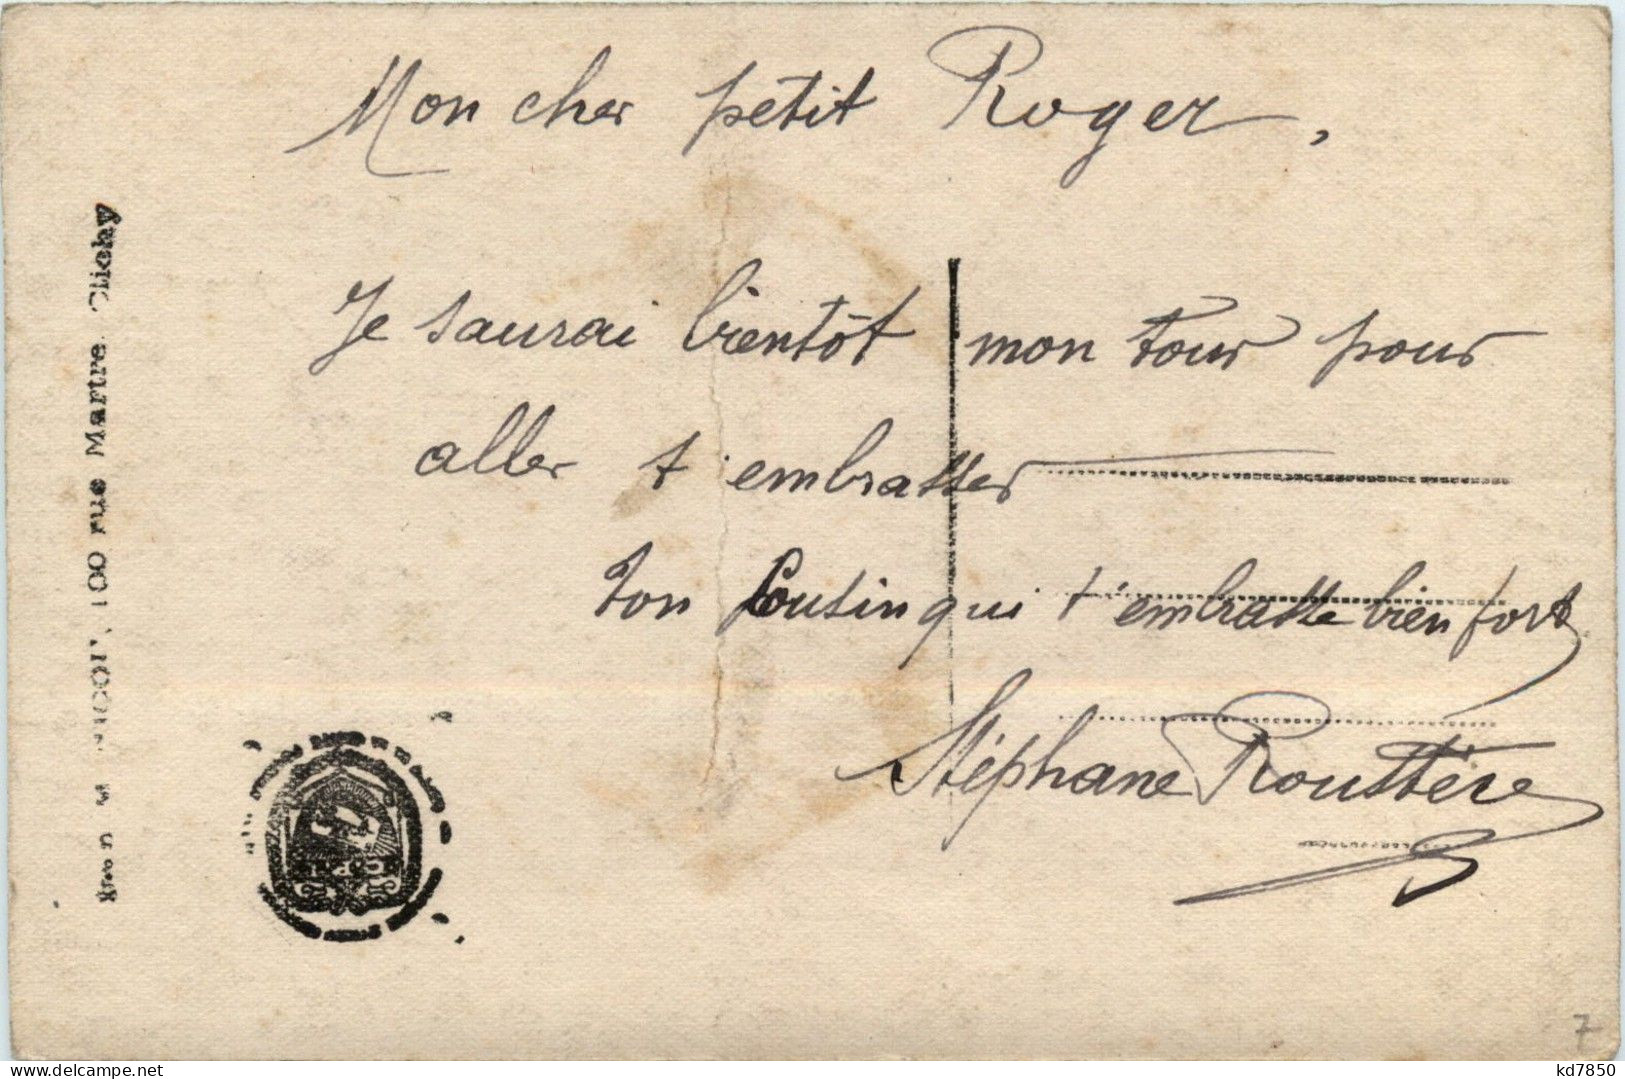 Mon cher petit Roger,
Je saurai bientôt mon tour pour
aller t embrasser
ton Cousin qui t'embrasse bien fort
Stéphane Roustère
100 rue Martre. Clichy
7
kd7850